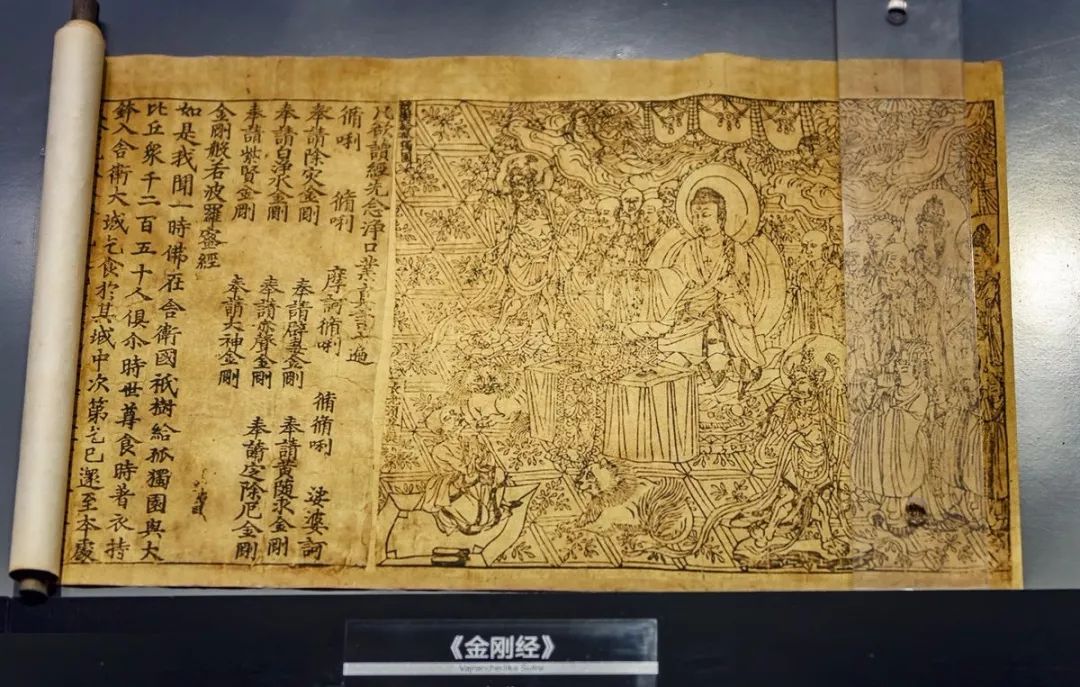 凡欲讀經先念淨口業真言一遍
脩唎 脩唎 摩訶脩唎 脩脩唎 娑婆訶
奉請除灾金剛 奉請辟毒金剛 奉請黃隨求金剛
奉請白淨水金剛 奉請赤聲金剛 奉請定除厄金剛
奉請紫賢金剛 奉請大神金剛
金剛般若波羅蜜經
如是我聞一時佛在舍衛國祇樹給孤獨園與大
比丘衆千二百五十人俱尒時世尊食時着衣持
鉢入舍衛大城乞食於其城中次第乞已還至本處
《金刚经》